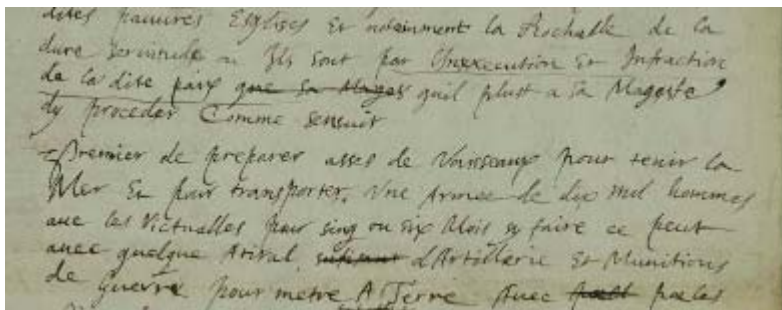 dites pauures Esglises Et notamment la Rochelle de la
dure seruitude n Ils sont par Linexecution Et Infraction
de la dite paix que sa Mages quil plust a sa Mageste
dy proceder Comme sensuit
Premier de preparer asses de Vaisseaux pour tenir la
Mer Et pour transporter. Vne Armee de dix mil hommes
auec les Victualles pour sinq ou six Mois sy faire ce peut
auec quelque Atiral d'Artillerie Et Munitions
de Guerre pour metre A Terre Auec